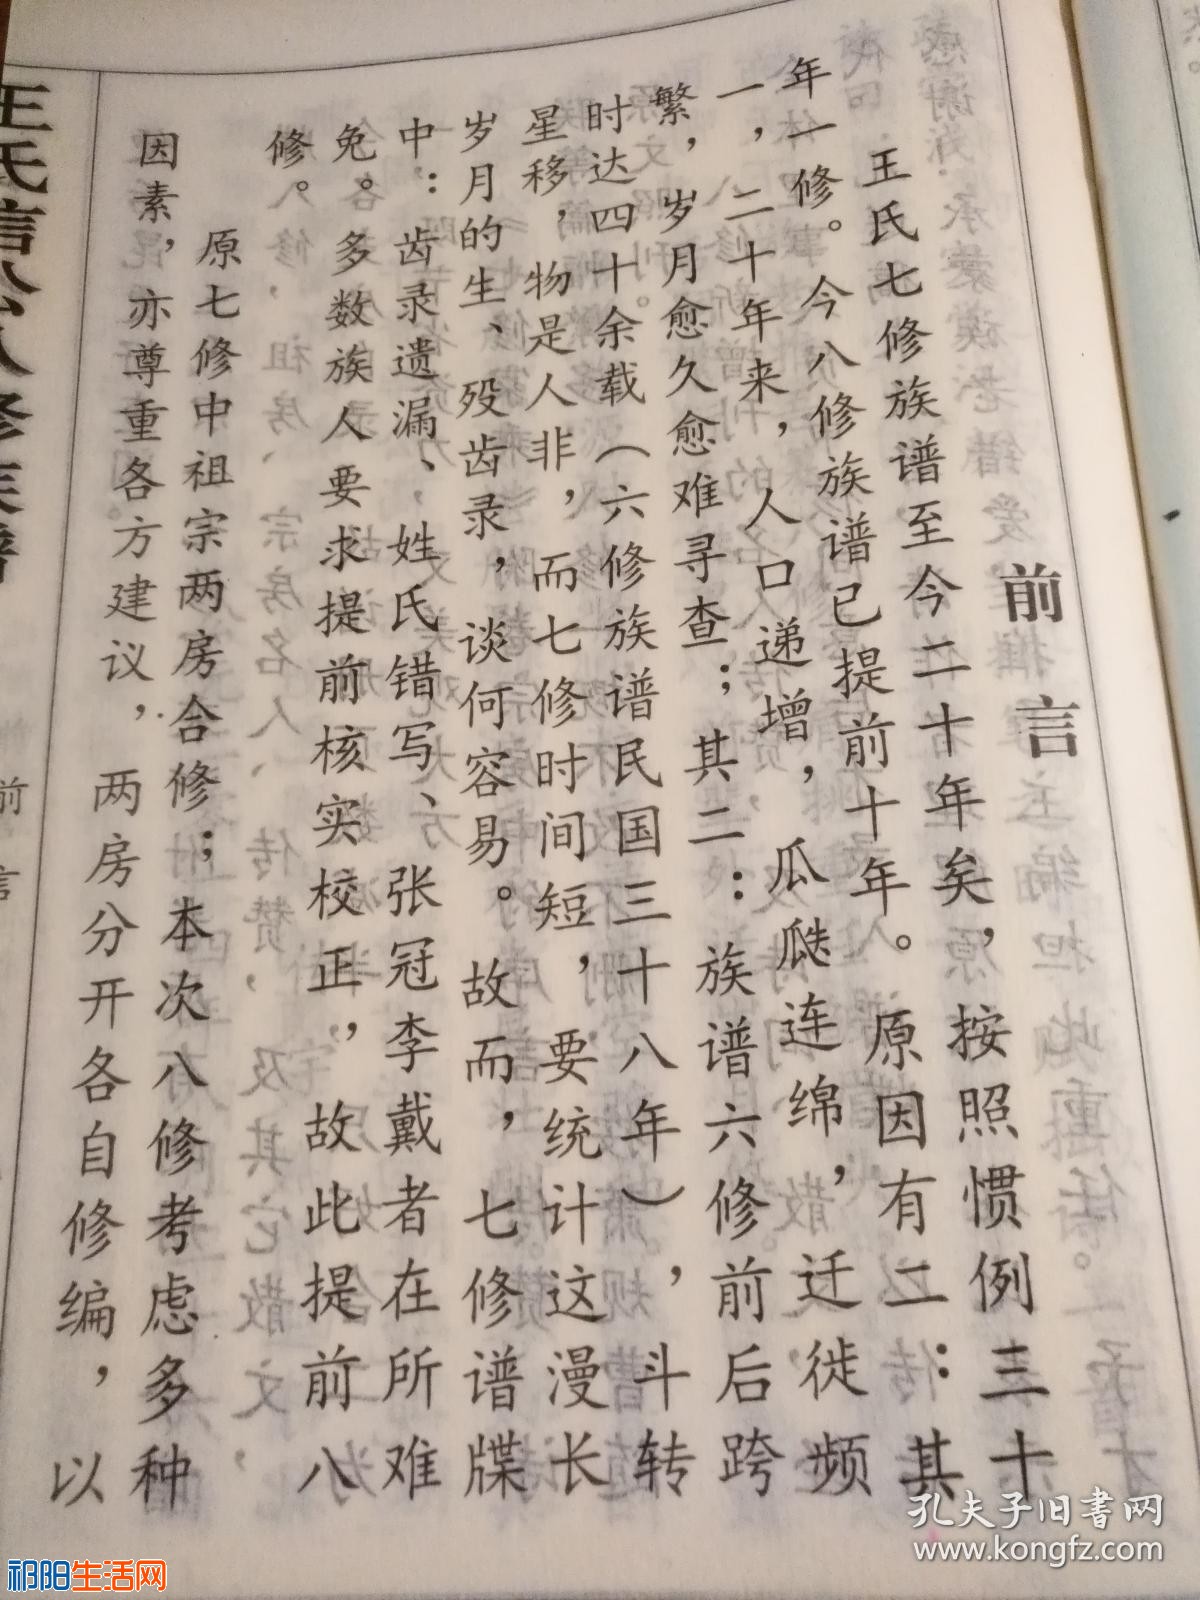 前言
王氏七修族谱至今二十年矣，按照惯例三十
年一修。今八修族谱已提前十年。原因有二：其
一，二十年来，人口递增，瓜瓞连绵，散迁徙频
繁，岁月愈久愈难寻查；其二：族谱六修前后跨
时达四十余载（六修族谱民国三十八年），斗转
星移，物是人非，而七修时间短，要统计这漫长
岁月的生、殁齿录，谈何容易。故而，七修谱牒
中：齿录遗漏、姓氏错写、张冠李戴者在所难
免。多数族人要求提前核实校正，故此提前八
修。
原七修中祖宗两房合修；本次八修考虑多种
因素，亦尊重各方建议，两房分开各自修编，以
王氏信公八修族谱
前言
孔夫子旧书网
www.kongfz.com
祁阳生活网